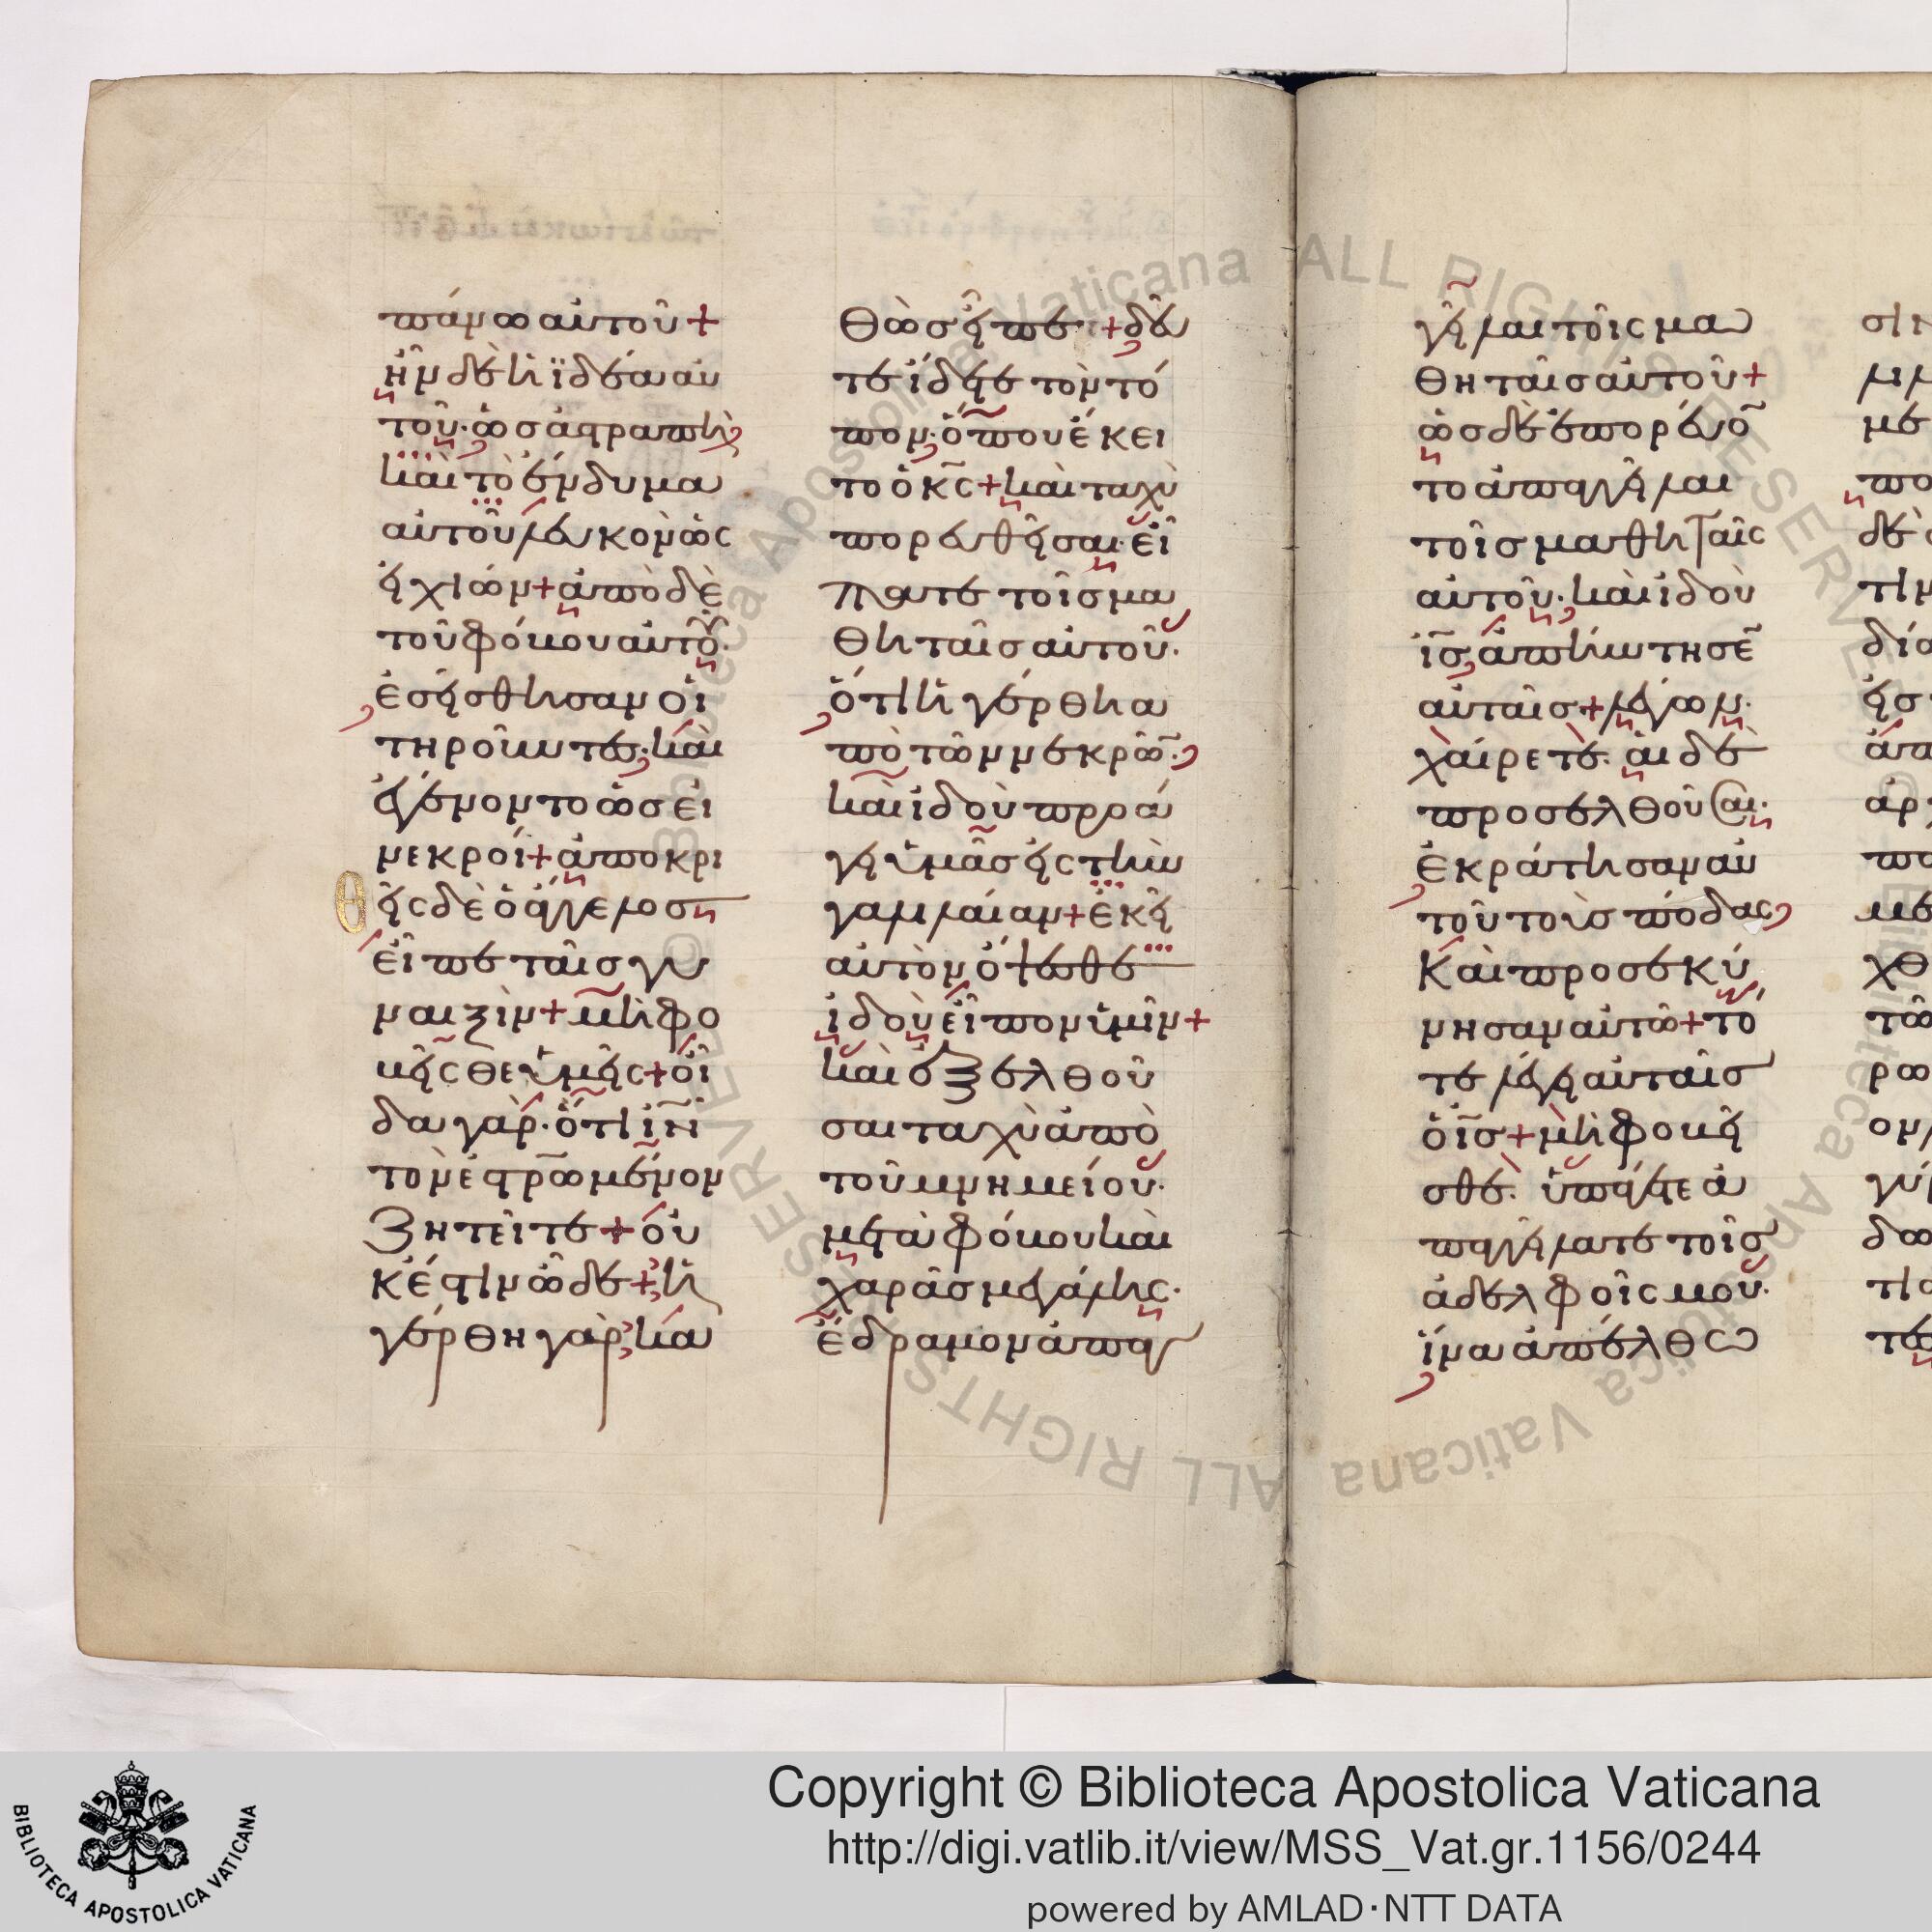 πάνω αὐτοῦ +
ἦν δὲ ἡ ϊδέα αὐ
τοῦ· ὡσ ἀστραπὴ
καὶ τὸ ἔνδυμα
αὐτοῦ λευκὸν ὡς
ἡ χιών + ἀπὸ δὲ
τοῦ φόβου αὐτοῦ·
ἐσείσθησαν οἱ
τηροῦντες· καὶ
ἐγένοντο ὡσεὶ
νεκροί + ἀποκρι
θεὶς δὲ ὁ ἄγγελοσ
εἶπε ταῖσ γυ
ναιξὶν + μὴ φο
βεῖςθε ὑμεῖς + οἶ
δα γὰρ· ὅτι ἰν̄
τὸν ἐστρωμένον
ζητεῖτε + οὐ
κ ἔστιν ὧδε + ἠ
γέρθη γὰρ, κα
θὼσ εἶπε· + δεῦ
τε ἴδετε τὸν τό
πον· ὅπου ἔκει
το ὁ κ̄ς + καὶ ταχὺ
πορευθεῖσαι εἴ
πατε τοῖσ μα
θηταῖσ αὐτοῦ·
ὅτι ἠγέρθη ἀ
πὸ τῶν νεκρῶ̄·
καὶ ἰδοὺ προά
γει ὑμᾶσ εἰς τὴν
γαλιλαίαν + ἐκεῖ
αὐτὸν ὄψεσθε
ἰδοὺ εἶπον ὑμῖν +
καὶ ἐξελθοῦ
σαι ταχὺ ἀπὸ
τοῦ μνημείου·
μετὰ φόβου καὶ
χαρᾶσ μεγάλης·
ἔδραμον ἀπαγ
γεῖλαι τοῖς μα
θηταῖσ αὐτοῦ +
ὡσ δὲ ἐπορεύο̄
το ἀπαγγεῖλαι
τοῖσ μαθηταῖς
αὐτοῦ· καὶ ἰδοὺ
ἰ̄σ ἀπήντησε̄
αὐταῖσ + λέγων·
χαίρετε· αἱ δὲ
προσελθοῦσαι·
ἐκράτησαν αὐ
τοῦ τοὺσ πόδας
καὶ προσεκύ
νησαν αὐτῶ + τό
τε λέγει αὐταῖσ
ὁ ἰ̄σ + μὴ φοβεῖ
σθε· ὑπάγετε ἀ
παγγείλατε τοῖσ
ἀδελφοῖς μου·
ἵνα ἀπέλθω
Copyright © Biblioteca Apostolica Vaticana
http://digi.vatlib.it/view/MSS_Vat.gr.1156/0244
powered by AMLAD·NTT DATA
BIBLIOTECA APOSTOLICA VATICANA